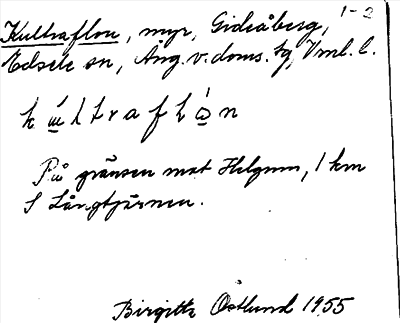 1-2
Kultraflon, myr, Gideåberg,
Edsele sn, Ång. v. doms. tg, Vnl. l.
kultraflån
På gränsen mot Helgum, 1 km
S Långtjärnen.
Birgitta Östlund 1955